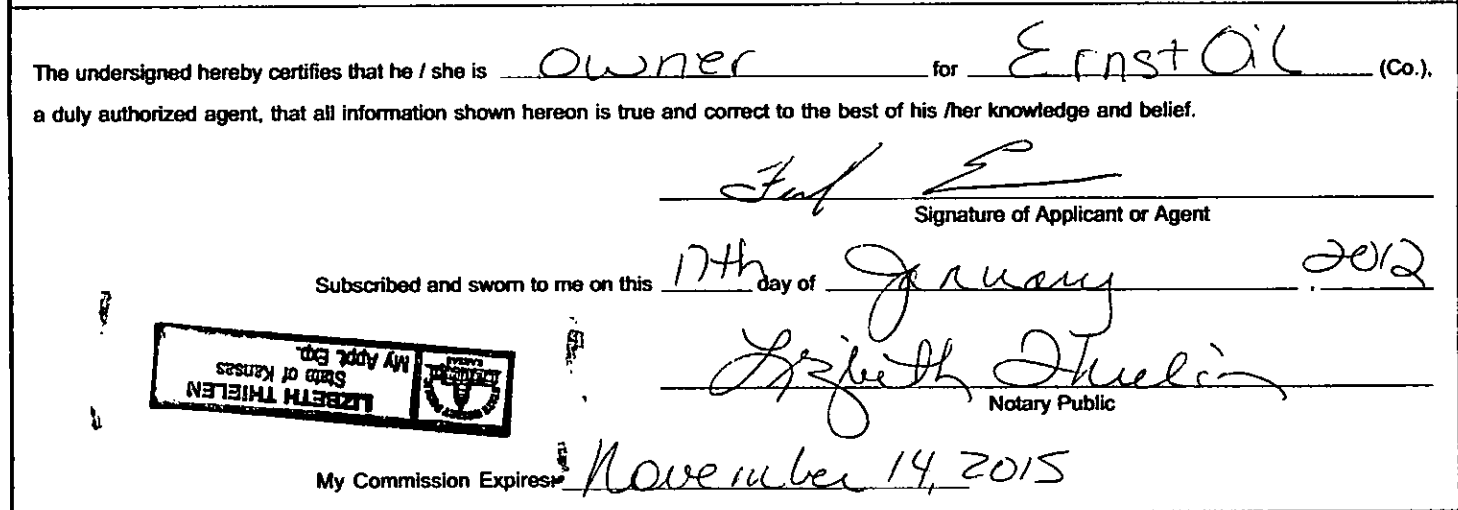 The undersigned hereby certifies that he / she is Owner for Ernst Oil (Co.),
a duly authorized agent, that all information shown hereon is true and correct to the best of his /her knowledge and belief.
Signature of Applicant or Agent
Subscribed and sworn to me on this 17th day of January , 2012
LIZBETH THIELEN
State of Kansas
My Appt. Exp.
Lizbeth Thielen
Notary Public
My Commission Expires: November 14, 2015